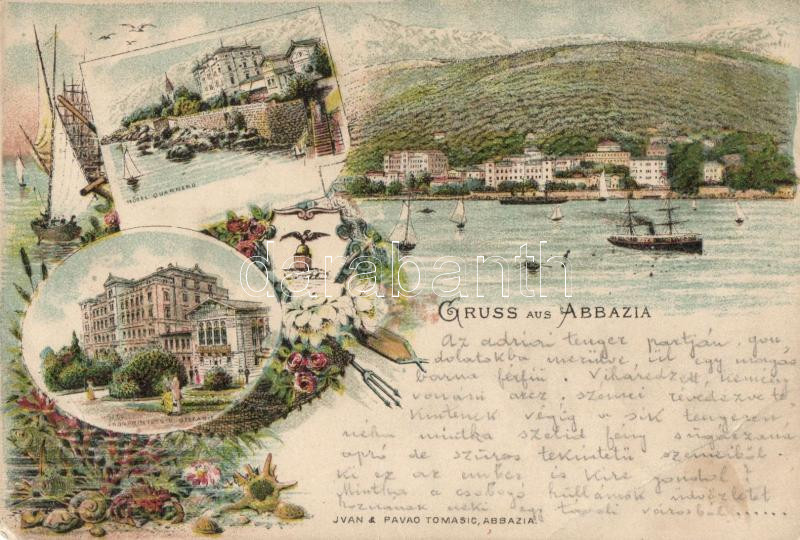 HOTEL QUARNERO
GRUSS AUS ABBAZIA
Az adriai tenger partján, gon
dolatokba merülve ül egy magas
barna férfiú. Viharedzett, kemény
vonású arcz, szemei révedezve te
kintenek végig a sík tengeren
néha mintha szelid fény sugározna
apró de szúros tekintetű szemeiből.
Ki ez az ember is kire gondol?
Mintha a csobogó hullámok üdvözletet
hoznának neki egy távoli városból......
JVAN & PAVAO TOMASIC, ABBAZIA.
darabanth